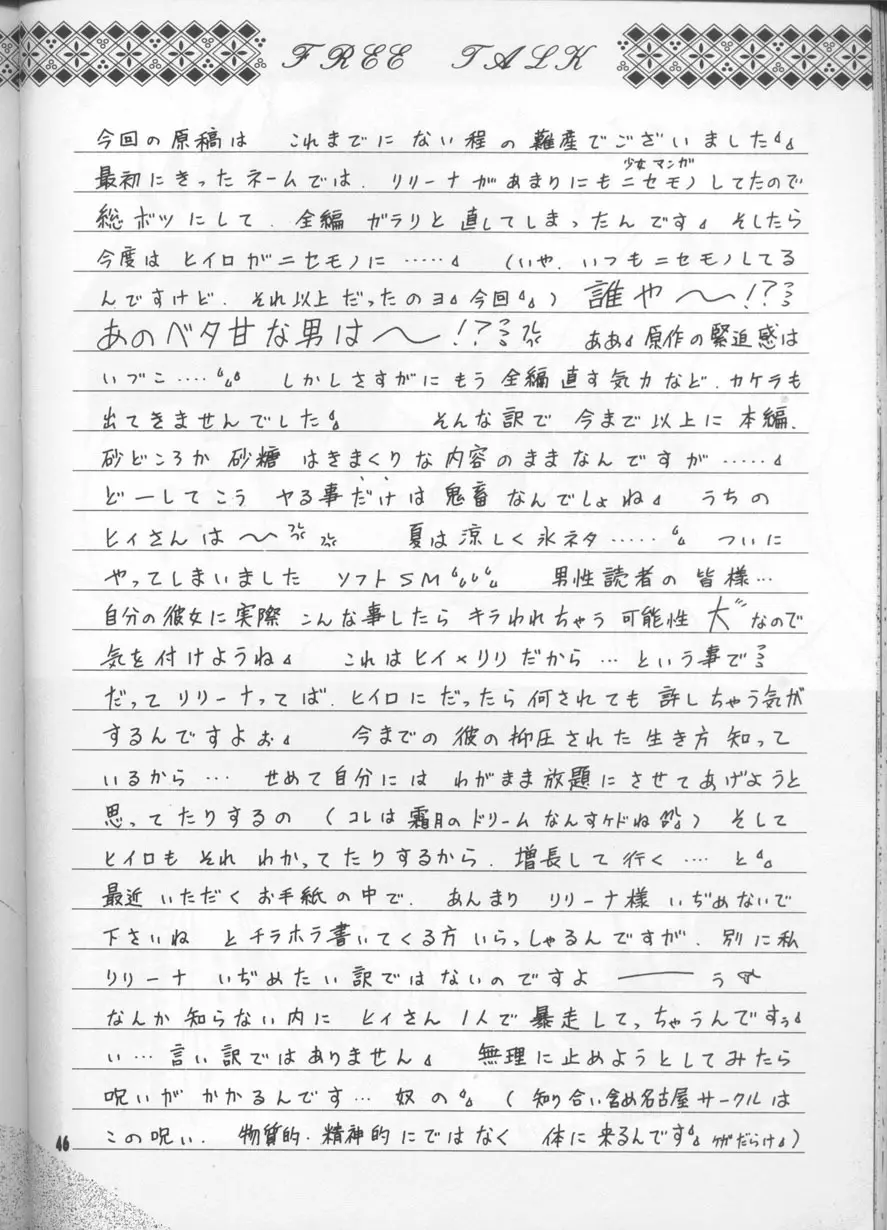 FREE TALK
今回の原稿は これまでに ない程の 難産でございました
少女マンガ
最初にきったネームでは、リリーナがあまりにもニセモノしてたので
総ボツにして、全編 ガラリと 直してしまったんです そしたら
今度は ヒイロがニセモノに …… (いや、いつもニセモノしてる
んですけど、それ以上だったのヨ 今回) 誰や〜!?
あのベタ甘な男は〜!? ああ 原作の緊迫感は
いづこ…… しかしさすがにもう 全編直す気力など、カケラも
出てきませんでした そんな訳で 今まで以上に 本編、
砂どころか 砂糖 はきまくりな内容のままなんですが ……
どーしてこう ヤる事だけは 鬼畜 なんでしょね うちの
ヒイさんは〜 夏は涼しく氷ネタ …… ついに
やってしまいました ソフトSM 男性読者の 皆様…
自分の彼女に実際 こんな事したら キラわれちゃう 可能性 大 なので
気を付けようね これはヒイ×リリだから … という事で
だって リリーナってば、ヒイロにだったら何されても 許しちゃう気が
するんですよぉ 今までの 彼の抑圧された 生き方 知って
いるから … せめて自分には わがまま放題にさせてあげようと
思ってたりするの (コレは 霜月のドリームなんすケドね) そして
ヒイロも それ わかってたりするから、増長して行く … と
最近 いただく お手紙の中で、あんまり リリーナ様 いぢめないで
下さいね とチラホラ書いてくる方 いらっしゃるんですが、別に私
リリーナ いぢめたい訳ではないのですよ ── う
なんか知らない内に ヒイさん 1人で 暴走してっちゃうんですぅ
い… 言い訳ではありません 無理に止めようとしてみたら
呪いが かかるんです… 奴の (知り合い含め名古屋サークルは
この呪い、物質的・精神的にではなく 体に来るんです ケガだらけ)
46